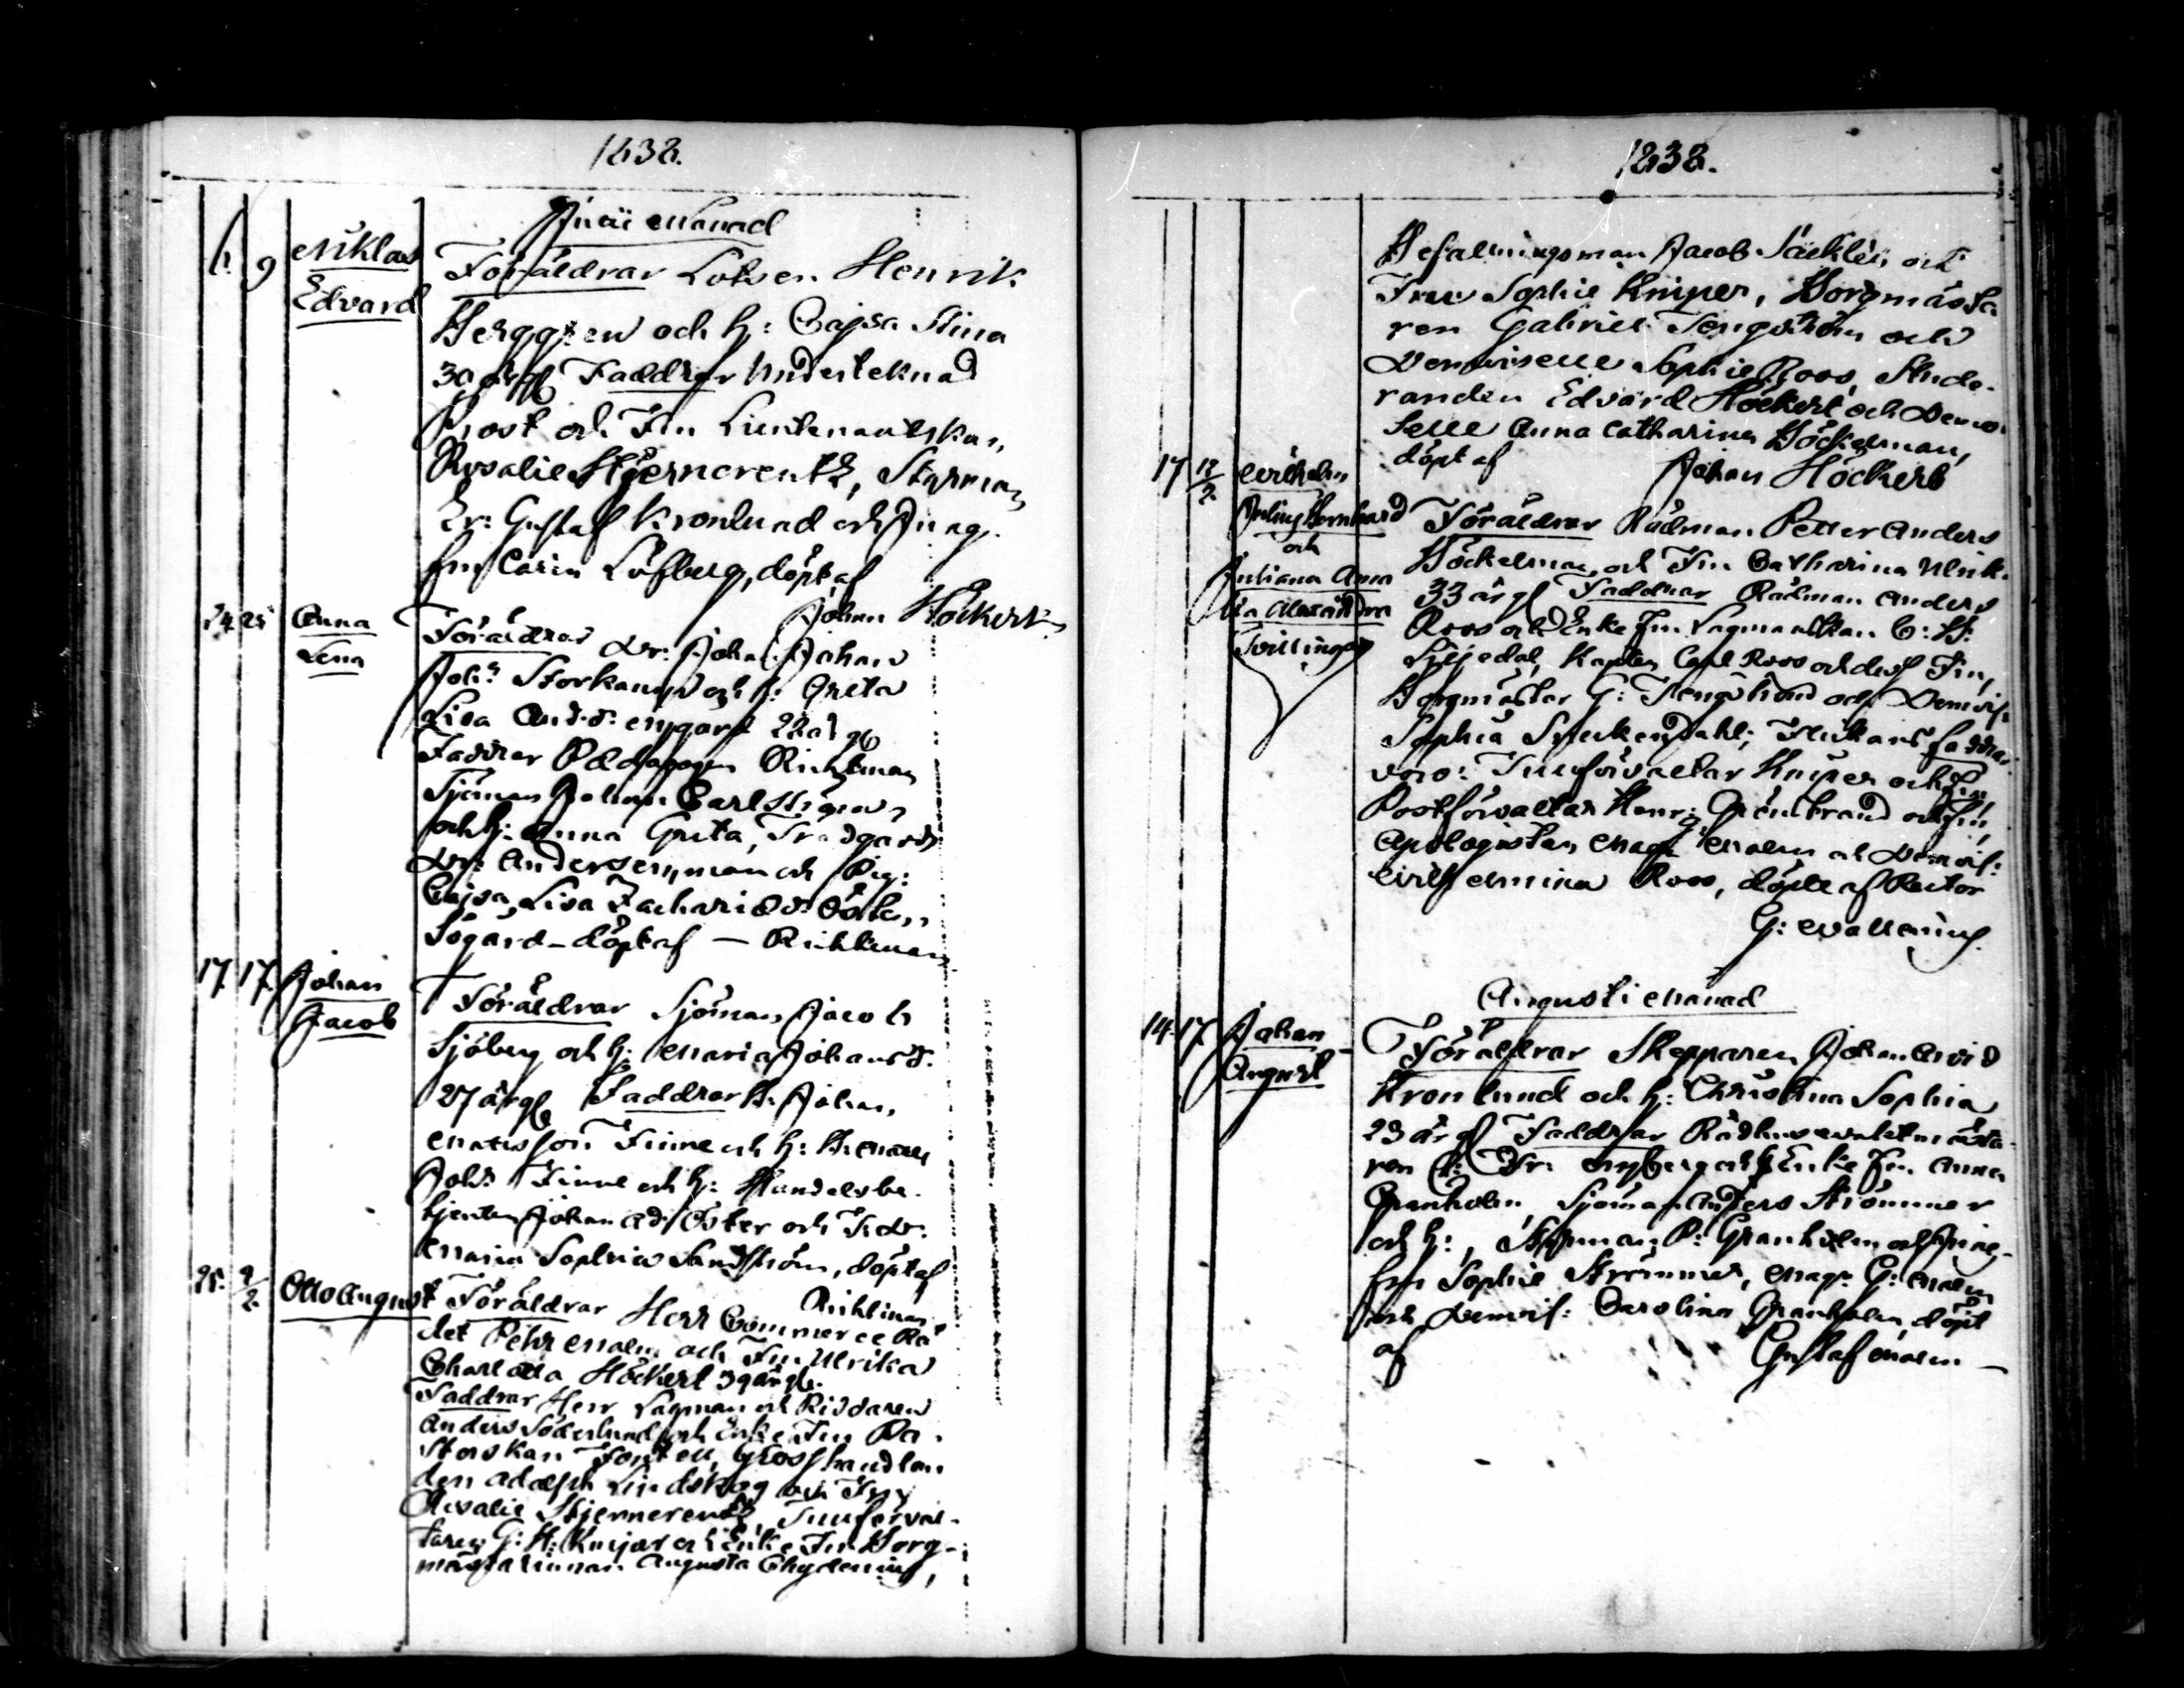 1838.
Månad
6 9 Niklas
Edvard
Föräldrar Lotsen Henrik
Berggren och h: Cajsa Stina
30 årg Faddrar Underteknad
Prost och Fru Lieutenantskan,
Rosalie Stjerncreutz, Styrman
Er: Gustaf Kronlund och Jung-
frun Carin Löfberg, döpt af
Johan Höckert
24 25 Anna
Lena
Föräldrar Dr: Johan Johan
Joh: Storkamp och h: Greta
Lisa And: d: Nygard 22 årg
Faddrar Pædagogen Richtman
Sjöman Johan Carl
och h: Anna Greta, Trädgårds
Dr: Anders Nyman och Pig:
Cajsa Lisa Zacharid:
Sögård - döpt af - Richtman
17 17. Johan
Jacob
Föräldrar Sjöman Jacob
Sjöberg och h: Maria Johansd.
27 årg Faddrar B. Johan
Matsson Finne och h: B.
Joh: Finne och h: Handelsbe-
tjenten Johan Ad: Öster och
Maria Sophia Sandström, döpt af
Richtman
25. 9/2 Otto August
Föräldrar Herr Commerce Rå-
det Pehr Malm och Fru Ulrika
Charlotta Höckert 39 årg.
Faddrar Herr Lagman och Riddaren
Anders Söderlund och Enke Fru Pa-
storskan Fontell, Grosshandlan
den Adolph Lindskog och Fru
Rosalie Stjerncreutz, Tullförval-
taren G: H: Kniper och Enke Fru Borg-
mästarinnan Augusta Chydenius,
1838.
Befallningsman Jacob Säcklén och
Fru Sophie Kniper, Borgmästa
ren Gabriel Tengström och
Demoiselle Sophie Roos, Stude-
randen Edvard Höckert och Demoi
selle Anna Catharina Höckelman,
döpt af
Johan Höckert
17 12/2 Wilhelm
Julius Bernhard
och
Juliana Ama
lia Alexandra
Tvillingar
Föräldrar Rådman Petter Anders
Höckelman och Fru Catharina Ulrik.
33 årg Faddrar Rådman Anders
Roos och Enke Fru Lagmanskan C: H:
Liljedal, Kapten Carl Roos och dess Fru,
Borgmästar G: Tengström och Demois:
Sophia Snickendahl; Flickans faddrar
voro: Tullförvaltar Kniper och Fru,
Postförvaltar Henr: Grönstrand och Fru,
Apologisten Mag: Malm och Demois:
Wilhelmina Roos, döpte af Rector
G: Wallenius.
Augusti Månad
14. 17. Johan
August
Föräldrar Skepparen Johan Arvid
Kronlund och h: Christina Sophia
23 årg Faddrar Rådhusvaktmästa-
ren C: Fr: Nyberg och Enke Fru Anna
Granholm, Sjöman Anders Strömmer
och h:, Styrman P: Granholm och Jung-
frun Sophie Strömmer, Mag: G: Malm
och Demois: Carolina Granholm, döpt
af Gustaf Malm